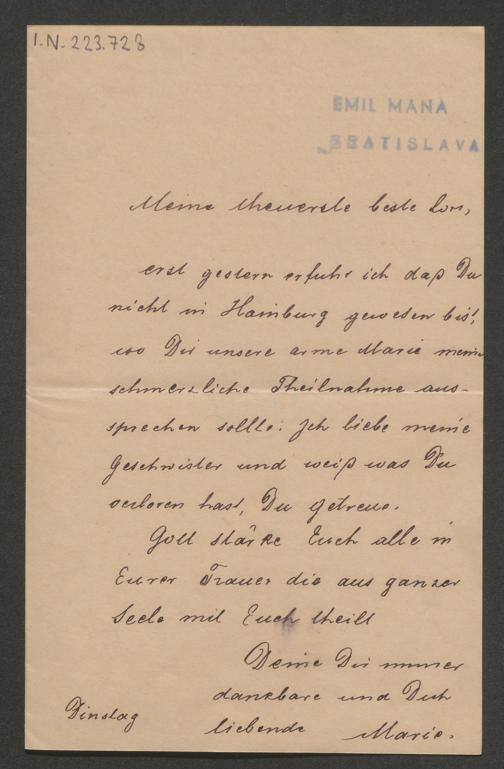 I.N. 223.728
EMIL MANA
BRATISLAVA
Meine theuerste beste Lori,
erst gestern erfuhr ich daß Du
nicht in Hainburg gewesen bist,
wo Dir unsere arme Marie meine
schmerzliche Theilnahme aus-
sprechen sollte. Ich liebe meine
Geschwister und weiß was Du
verloren hast, Du getreue.
Gott stärke Euch alle in
Eurer Trauer die aus ganzer
Seele mit Euch theilt
Deine Dir immer
dankbare und Dich
Dinstag liebende Marie.